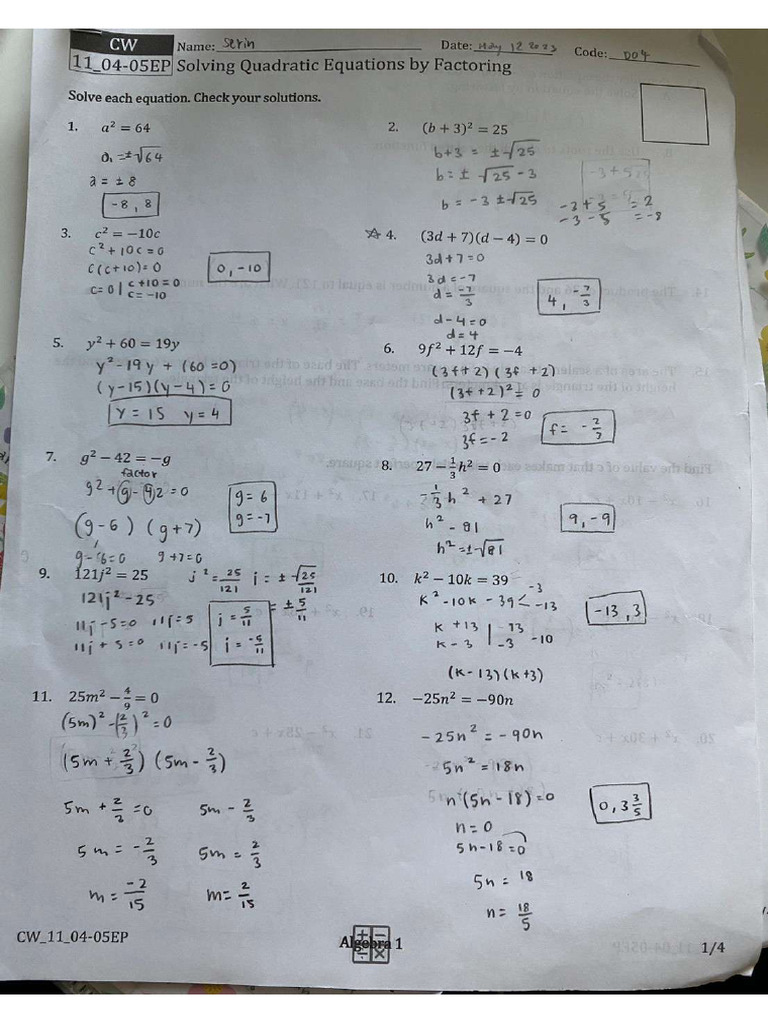 CW
Name: Serin
Date: May 12 2023
Code: D04
11_04-05EP Solving Quadratic Equations by Factoring
Solve each equation. Check your solutions.
1. a² = 64
a = ±√64
a = ± 8
-8, 8
2. (b + 3)² = 25
b+3 = ±√25
b = ± √25 - 3
b = -3 ±√25
-3 + 5 = 2
-3 - 5 = -8
3. c² = −10c
c² + 10c = 0
c(c+10) = 0
c=0 | c+10 = 0
c = -10
0, -10
☆ 4. (3d + 7)(d − 4) = 0
3d + 7 = 0
3d = -7
d = -7/3
d - 4 = 0
d = 4
4, -7/3
5. y² + 60 = 19y
y² - 19y + (60 = 0)
(y-15)(y-4) = 0
y = 15 y = 4
6. 9f² + 12f = −4
(3f + 2) (3f + 2)
(3f + 2)² = 0
3f + 2 = 0
3f = -2
f = -2/3
7. g² − 42 = −g
factor
g² + g - 42 = 0
(g - 6) (g + 7)
g - 6 = 0 g + 7 = 0
g = 6
g = -7
8. 27 − 1/3 h² = 0
-1/3 h² + 27
h² - 81
h² = ±√81
9, -9
9. 121j² = 25
j² = 25/121 j = ±√25/121
121j² - 25
= ± 5/11
11j - 5 = 0 11j = 5
11j + 5 = 0 11j = -5
j = 5/11
j = -5/11
10. k² − 10k = 39
k² - 10k - 39 < -3
-13
k +13 | -13
k - 3 | -3 -10
(k - 13)(k + 3)
-13, 3
11. 25m² − 4/9 = 0
(5m)² - (2/3)² = 0
(5m + 2/3) (5m - 2/3)
5m + 2/3 = 0 5m - 2/3
5m = -2/3 5m = 2/3
m = -2/15 m = 2/15
12. −25n² = −90n
-25n² = -90n
5n² = 18n
n(5n - 18) = 0
n = 0
5n - 18 = 0
5n = 18
n = 18/5
0, 3 3/5
CW_11_04-05EP
Algebra 1
1/4